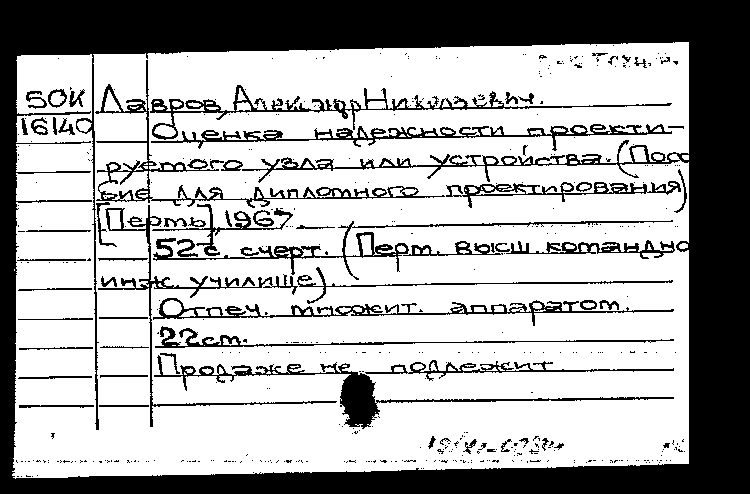 50К Лавров, Александр Николаевич.
16140 Оценка надежности проекти-
руемого узла или устройства. (Посо
бие для дипломного проектирования)
[Пермь], 1967.
52 с. с черт. (Перм. высш. командно
инж. училище).
Отпеч. множит. аппаратом.
22 см.
Продаже не подлежит